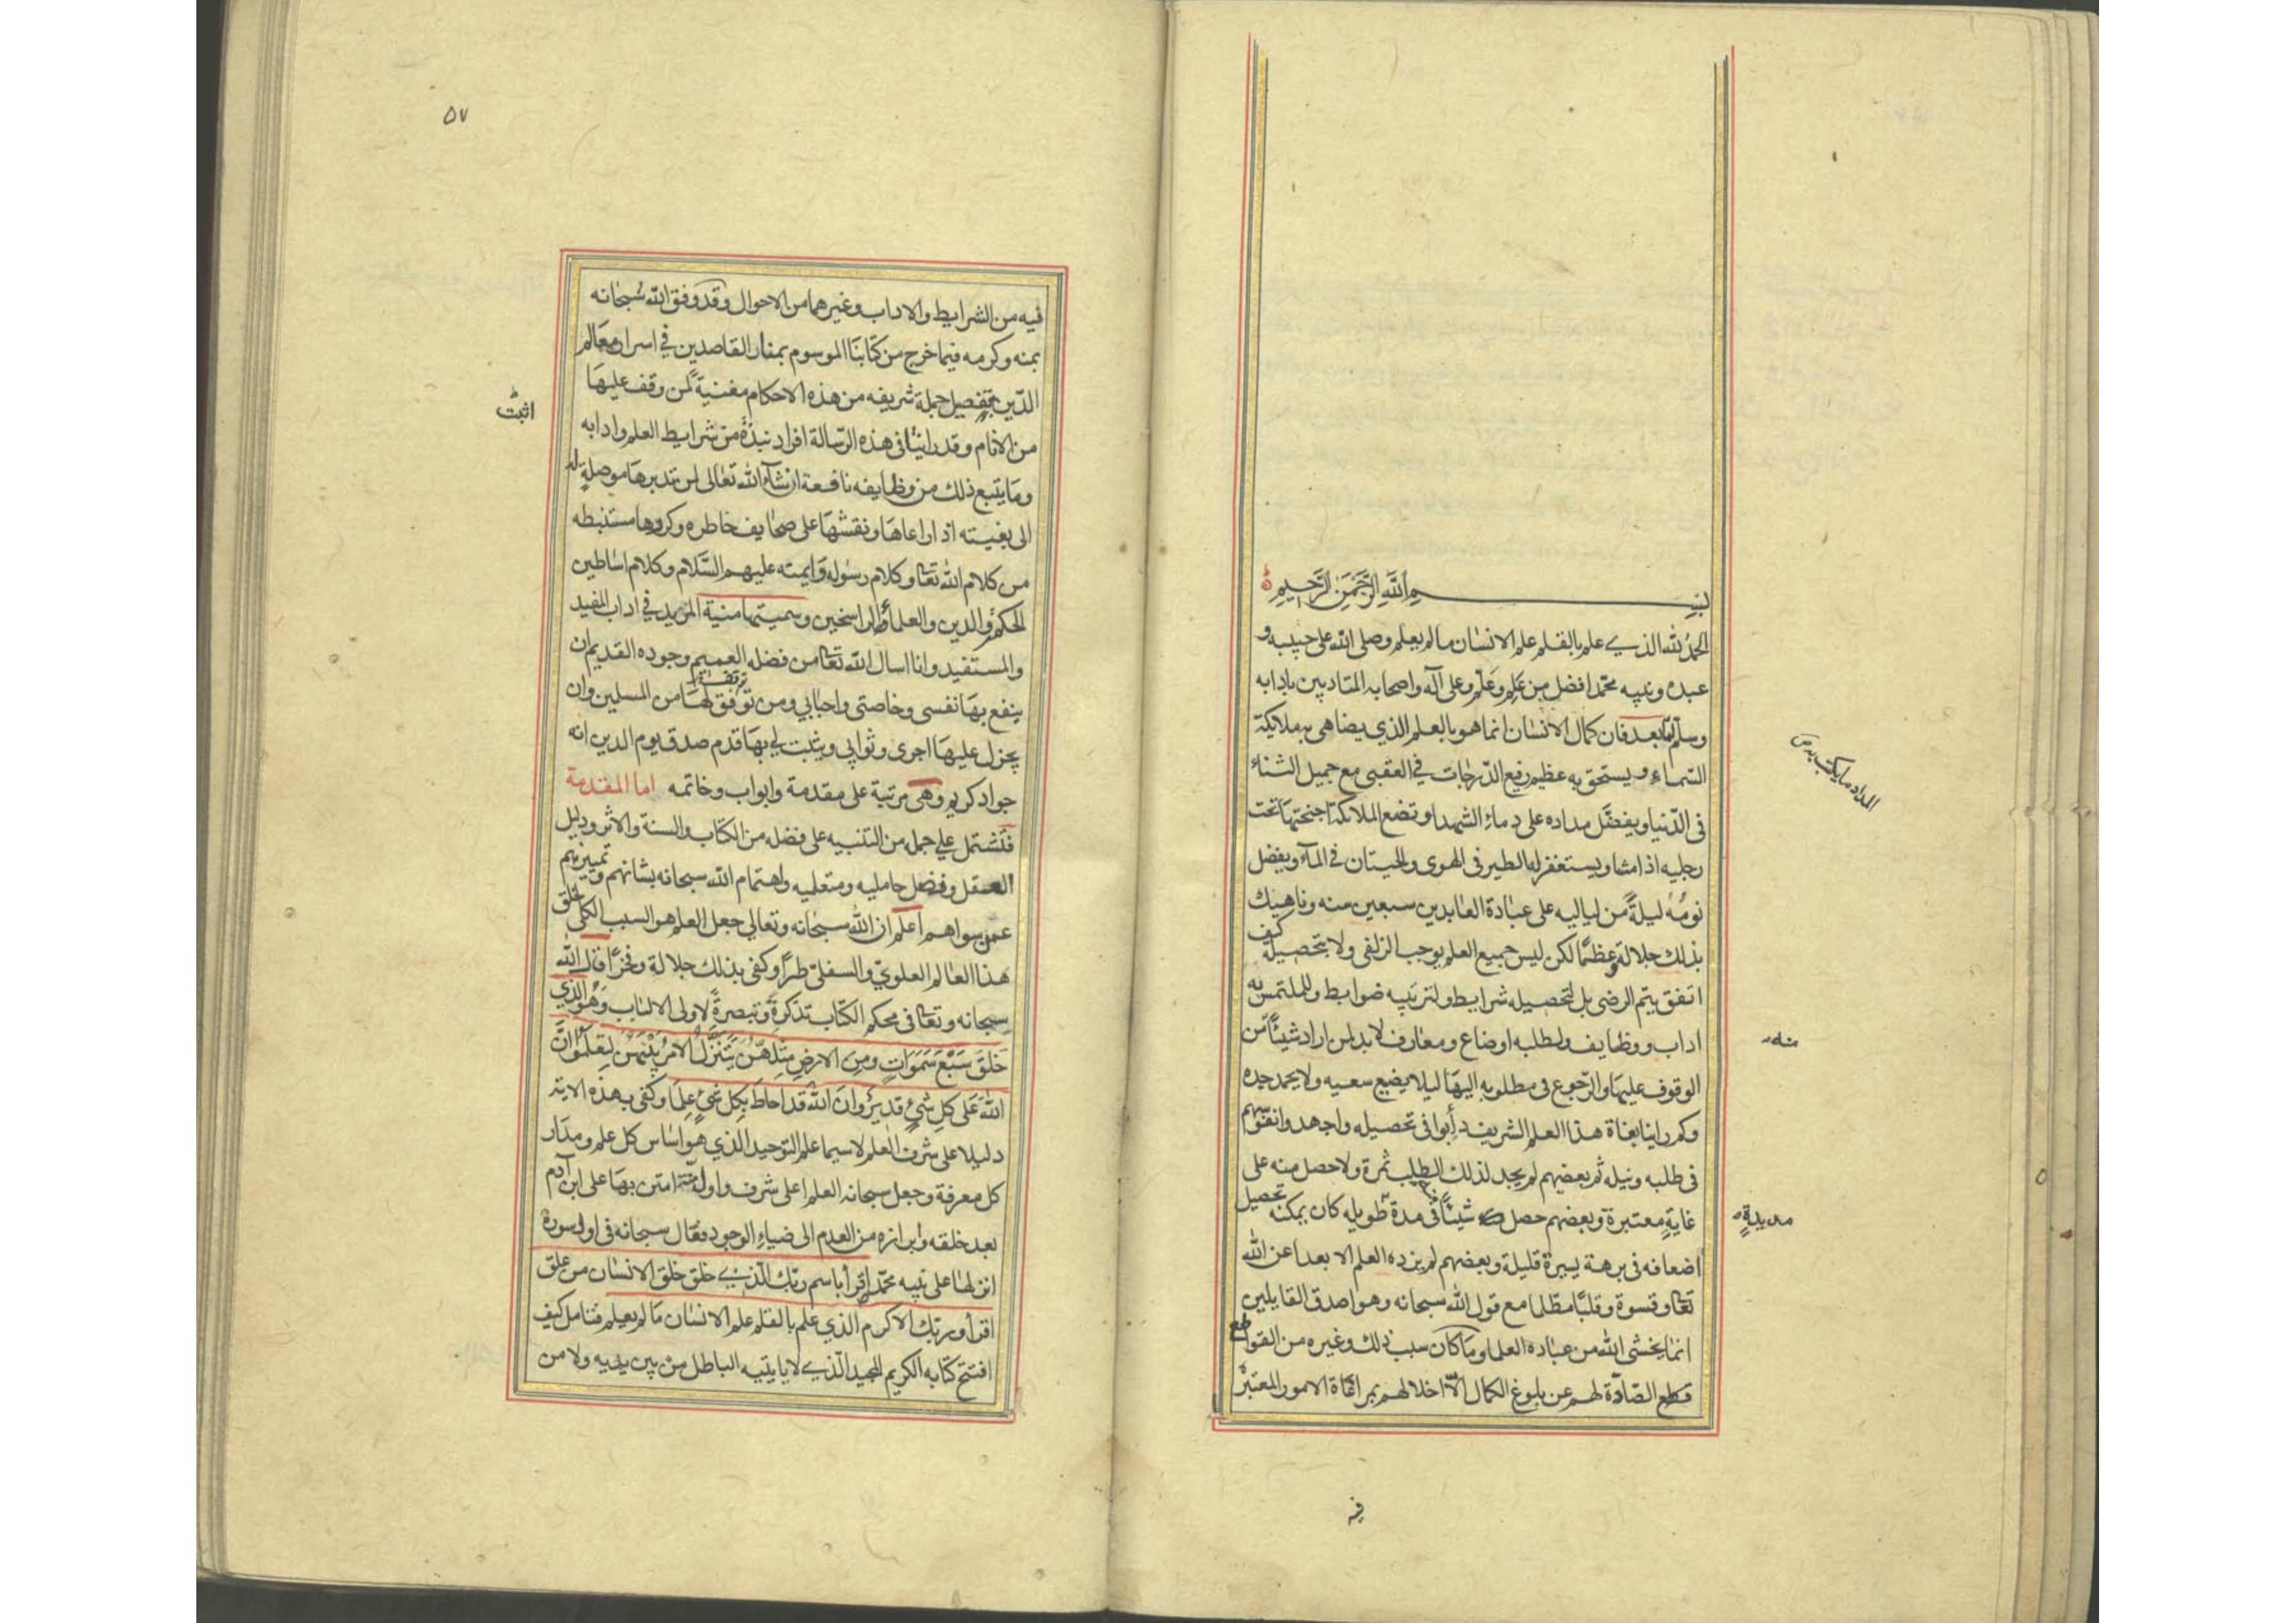 بسم الله الرحمن الرحيم
الحمد لله الذي علم بالقلم علم الانسان مالم يعلم وصلى الله على حبيبه و
عبده ونبيه محمد افضل من عَلِم وعَلّم وعلى آله واصحابه المتادبين بادابه
وسلم اما بعد فان كمال الانسان انما هو بالعلم الذي يضاهى به ملايكة
السّماء ويستحق به عظيم رفيع الدّرجات في العقبى مع جميل الثناء
فى الدّنيا ويفضّل مداده على دماء الشهدا وتضع الملائكة اجنحتها تحت
رجليه اذا مشا ويستغفر له الطير فى الهوى والحيتان في المآء ويفضل
نومُه ليلةً من لياليه على عبادة العابدين سبعين سنه وناهيك
بذلك جلالة وعظمًا لكن ليس جميع العلم يوجب الزلفى ولا تحصيله كيف
اتفق يتم الرضى بل لتحصيله شرايط ولترتيبه ضوابط وللملتمس به
اداب ووظايف ولطلبه اوضاع ومعارف لابد لمن اراد شيئًا من
الوقوف عليها والرّجوع فى مطلوبه اليها ليلا يضيع سعيه ولا يخمد جده
وكم راينا بغاة هذا العلم الشريف دأبوا فى تحصيله واجهدوا نفوسهم
فى طلبه ونيله ثم بعضهم لم يجد لذلك الطلب ثمرة ولا حصل منه على
غايةٍ معتبرة وبعضهم حصل شيئًا فى مدة طويله كان يمكنه تحصيل
اضعافه فى برهة يسيرة قليلة وبعضهم لم يزده العلم الا بعدا عن الله
تعا وقسوة وقلبًا مظلما مع قول الله سبحانه وهو اصدق القايلين
انما يخشى الله من عباده العلما وما كان سبب ذلك وغيره من القواطع
الصّادّة لهم عن بلوغ الكمال الّا اخلالهم بمراعاة الامور المعتبرة
فيه
المداد ما يكتب به ص
منه
مديدةٍ
٥٧
فيه من الشرايط والاداب وغيرهما من الاحوال وقد وفق الله سُبحانه
بمنه وكرمه فيما خرج من كتابنا الموسوم بمنار القاصدين في اسرار معالم
الدّين بتفصيل جملة شريفه من هذه الاحكام مغنيةً لمن وقف عليها
من الانام وقد راينا فى هذه الرّسالة افراد نبذة من شرايط العلم وادابه
وما يتبع ذلك من وظايفه نافعة ان شآء الله تعالى لمن تدبرها موصلة له
الى بغيته اذا راعاها ونقشها على صحايف خاطره وكررها مستنبطه
من كلام الله تعا وكلام رسوله وايمته عليهم السَّلام وكلام اساطين
الحكمة والدين والعلماء الراسخين وسميتها منية المريد في اداب المفيد
والمستفيد وانا اسال الله تعا من فضله العميم وجوده القديم ان
ينفع بها نفسى وخاصتى واحبابي ومن توفق لها من المسلمين وان
يجزل عليها اجرى وثوابي ويثبت لي بها قدم صدق يوم الدين انه
جواد كريم وهى مرتبة على مقدمة وابواب وخاتمه اما المقدمة
فتشتمل على جمل من التنبيه على فضل من الكتاب والسنة والاثر ودليل
العقل وفضل حامليه ومتعلميه واهتمام الله سبحانه بشانهم وتمييزهم
عمن سواهم اعلم ان الله سبحانه وتعالي جعل العلم هو السبب الكلى لخلق
هذا العالم العلوي والسفلى طرًا وكفى بذلك جلالة وفخرًا قال الله
سبحانه وتعا فى محكم الكتاب تذكرةً وتبصرةً لاولى الالباب وهو الذي
خلَقَ سَبْعَ سَمَوَاتٍ ومِنَ الارضِ مِثلَهنّ يَتَنزَّلُ الامرُ بَيْنَهنَّ لِتعلَمُوا انَّ
اللهَ عَلى كلِ شئٍ قديرٌ وانَّ اللهَ قد احاطَ بِكل شئٍ عِلمًا وكفى بهذه الاية
دليلا على شرف العلم لاسيما علم التوحيد الذي هو اساس كل علم ومدار
كل معرفة وجعل سبحانه العلم اعلى شرف واول منّة امتن بها على ابن آدم
بعد خلقه وابرازه من العدم الى ضياء الوجود فقال سبحانه فى اول سورة
انزلها على نبيه محمد اقرأ باسم ربّك الّذي خلق خلق الانسان من علق
اقرأ وربّك الاكرم الذي علم بالقلم علم الانسان ما لم يعلم فتامل كيف
افتتح كتابه الكريم المجيد الّذي لا ياتيه الباطل من بين يديه ولا من